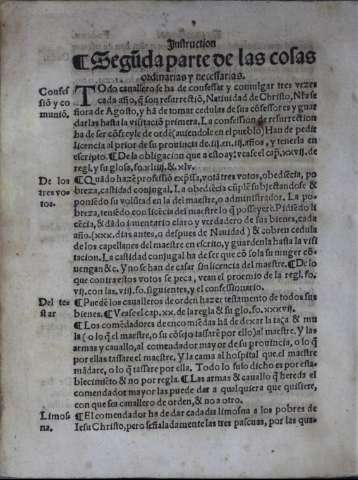 Instruction
¶Segũda parte de las cosas
ordinarias y necessarias.
Confes
sió y co
munió.
TOdo cauallero se ha de confessar y comulgar tres vezes
cada año, q̃ son resurrectiõ, Natiuidad de Christo, Nra se
ñora de Agosto, y há de tomar cedulas de sus cõfessores y guar
darlas hasta la visitació primera. La confession de resurrection
ha de ser cõ freyle de ordẽ (auiendole en el pueblo) Han de pedir
licencia al prior de su prouincia de .iij. en .iij. años, y tenerla en
escripto. ¶De la obligacion que a esto ay: vease el cap. xxvij. de
regl. y su glosa, fo. & xlv.
De los
tres vo
tos.
¶Quãdo hazẽ professió expssa, votã tres votos, obediẽcia, po
breza, castidad conjugal. La obediẽcia cũplẽ subjectandose &
poniẽdo su volũtad en la del maestre, o administrador. La po
breza, teniẽdo con licẽcia del maestre lo q̃ posseyerẽ. Pidiẽdo li
cẽcia, & dãdo inuentario claro y verdadero de sus bienes, cada
año. (xxx. dias antes, o despues de Nauidad) & cobren cedula
de los capellanes del maestre en escrito, y guardenla hasta la visi
tacion. La castidad conjugal ha de ser que cõ sola su muger cõ
uengan &c. Y no se han de casar sin licencia del maestre. ¶De lo
que contra estos votos se peca, vean el proemio de la regl. fo.
vij. con las .viij. fo. siguientes, y el confessionario.
Del tes
tar
¶Puedẽ los caualleros de orden hazer testamento de todos sus
bienes. ¶Vease el cap. xx. de la regla & su glo. fo. xxxvij.
¶Los comẽdadores de encomiẽdas há de dexar la taça & mu
la (o lo q̃ el maestre, o su cõsejo tassarẽ por ello) al maestre. Y las
armas y cauallo, al comendador mayor de su prouincia, o lo q̃
por ellas tassare el maestre, y la cama al hospital que el maestre
mãdare, o lo q̃ tassare por ella. Todo lo suso dicho es por esta-
blecimiẽto & no por regla. ¶Las armas & cauallo q̃ hereda el
comendador mayor las puede dar a qualquiera que quisiere,
con que sea cauallero de orden, & no a otro.
Limos
na.
¶El comendador ha de dar cada dia limosna a los pobres de
Iesu Christo, pero señaladamente las tres pascuas, por las qua-